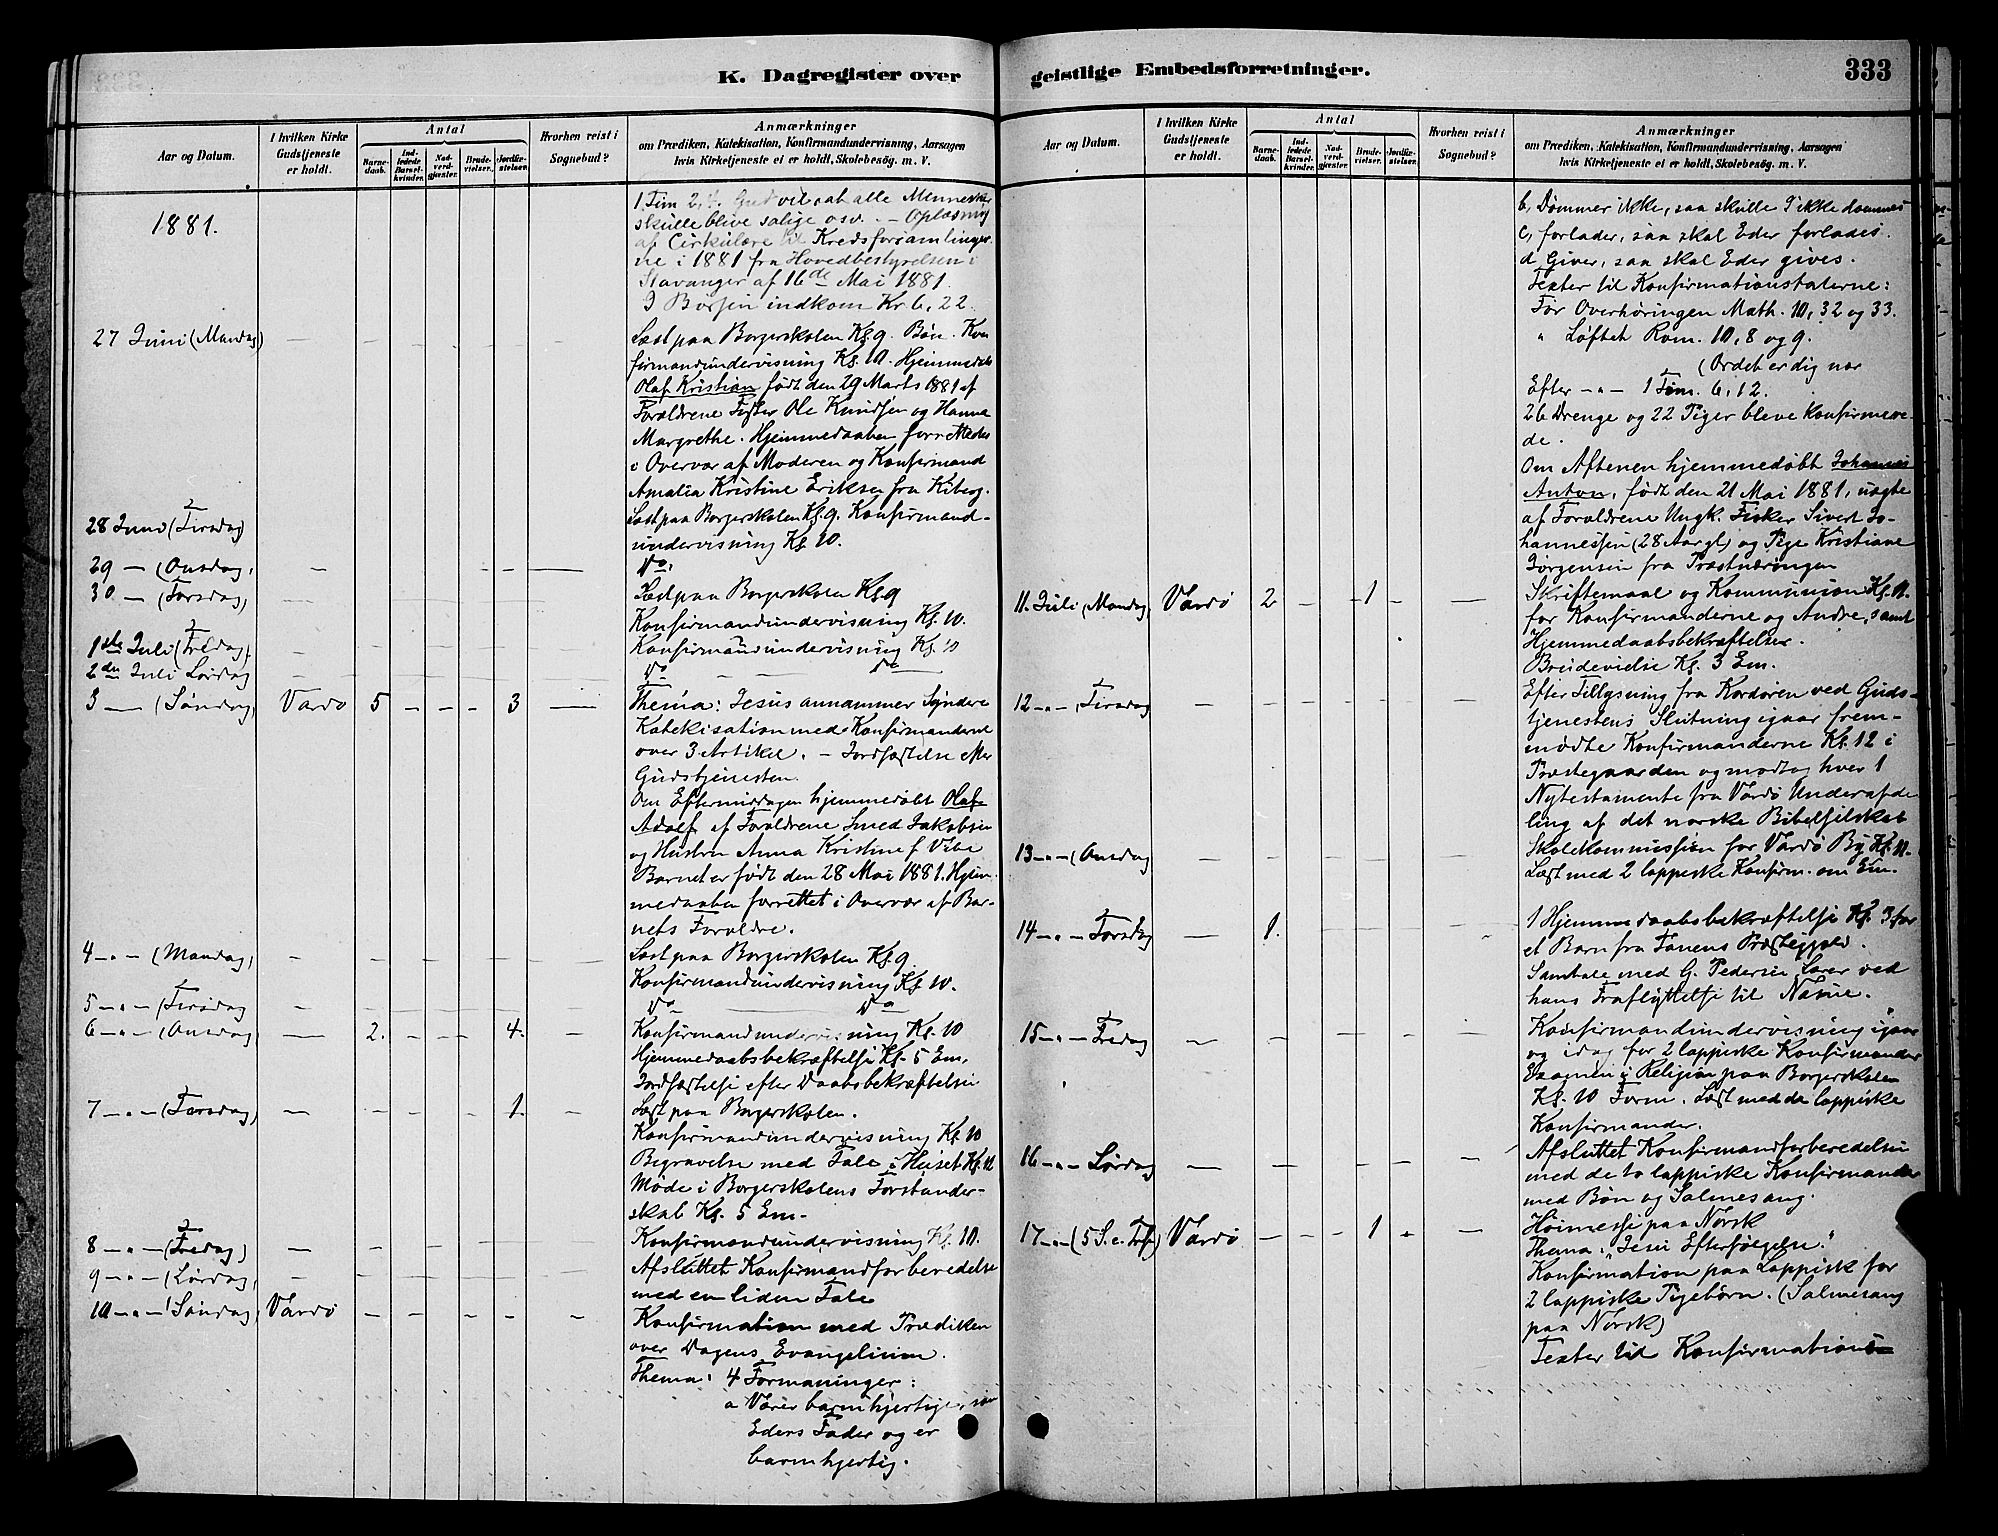 K. Dagregister over
Aar og Datum.
I hvilken Kirke
Gudstjeneste
er holdt.
Antal
Barne-
daab.
Ind-
ledede
Barsel-
kvinder.
Nad-
verd-
gjæster.
Brude-
vielser.
Jordfæ-
stelser.
Hvorhen reist i
Sognebud?
Anmærkninger
om Prædiken, Katekisation, Konfirmandundervisning, Aarsagen
hvis Kirketjeneste ei er holdt, Skolebesøg. m. V.
1881.
1 Tim 2, 4. Gud vil at alle Mennesker
skulle blive salige osv. – Oplæsning
af Cirkulære til Kredsforsamlinger
ne i 1881 fra Hovedbestyrelsen i
Stavanger af 16de Mai 1881.
I Børsen indkom Kr. 6,22.
27 Juni (Mandag)
Læst paa Borgerskolen Kl. 9. Bøn. Kon
firmandundervisning Kl. 10. Hjemmedøbt
Olaf Kristian født den 29 Marts 1881 af
Forældrene Fisker Ole Knudsen og Hanna
Margrethe. Hjemmedaaben forr.
i Overvær af Moderen og Konfirmand
Amalia Kristine Eriksen fra Kiberg.
28 Juni (Tirsdag)
Læst paa Borgerskolen Kl. 9. Konfirmand-
undervisning Kl. 10.
29 – (Onsdag)
Do.
30 – (Torsdag)
Læst paa Borgerskolen Kl. 9
Konfirmandundervisning Kl. 10.
1ste Juli (Fredag)
Konfirmandundervisning Kl. 10
2den Juli Lørdag
Do – – Do
3 – (Søndag) Vardø 5 – – – 3 –
Thema: Jesus annammer Syndere
Katekisation med Konfirmanderne
over 3 Artikel. – Jordfæstelse efter
Gudstjenesten.
Om Eftermiddagen hjemmedøbt Olaf
Adolf af Forældrene Smed Jakobsen
og Hustru Anna Kristine f. Vibe
Barnet er født den 28 Mai 1881. Hjem-
medaaben forrettet i Overvær af Bar-
nets Forældre.
4 – " – (Mandag)
Læst paa Borgerskolen Kl. 9.
Konfirmandundervisning Kl. 10.
5 – " – (Tirsdag
Do – – Do
6 – " – (Onsdag) – 2. – – – 4. –
Konfirmandundervisning Kl. 10
Hjemmedaabsbekræftelse Kl. 5 Em.
Jordfæstelse efter Daabsbekræftelsen
7 – " – (Torsdag) – – – – – 1. –
Læst paa Borgerskolen.
Konfirmandundervisning Kl. 10
Begravelse med Tale i Huset Kl. 12
Møde i Borgerskolens Forstander-
skab Kl. 5 Em.
8 – " – (Fredag)
Konfirmandundervisning Kl. 10.
9 – " – (Lørdag)
Afsluttet Konfirmandforberedelse
med en liden Tale
10 – " – Søndag) Vardø
Konfirmation med Prædiken
over Dagens Evangelium.
Thema: 4 Formaninger:
a Værer barmhjertige, som
Eders Fader og er
barmhjertig.
geistlige Embedsforretninger.
333
Aar og Datum.
I hvilken Kirke
Gudstjeneste
er holdt.
Antal
Barne-
daab.
Ind-
ledede
Barsel-
kvinder.
Nad-
verd-
gjæster.
Brude-
vielser.
Jordfæ-
stelser.
Hvorhen reist i
Sognebud?
Anmærkninger
om Prædiken, Katekisation, Konfirmandundervisning, Aarsagen
hvis Kirketjeneste ei er holdt, Skolebesøg. m. V.
b, Dømmer ikke, saa skulle I ikke dømmes
c, forlader, saa skal Eder forlades.
d Giver, saa skal Eder gives.
Texter til Konfirmationstalerne:
Før Overhøringen Math. 10, 32 og 33.
" Løftet Rom. 10, 8 og 9.
(Ordet er dig nær
Efter – " – 1 Tim. 6, 12.
26 Drenge og 22 Piger bleve konfirmere-
de.
Om Aftenen hjemmedøbt Johannes
Anton, født den 21 Mai 1881, uægte
af Forældrene Ungk. Fisker Sivert Jo-
hannessen (28 Aar gl) og Pige Kristiane
Jørgensen fra Præstnæringen
11. Juli (Mandag) Vardø 2 – – 1 – –
Skriftemaal og Kommunion Kl. 11.
for Konfirmanderne og Andre, samt
Hjemmedaabsbekræftelser.
Brudevielse Kl. 3 Em.
12 – " – (Tirsdag
Efter Tillysning fra Kordøren ved Guds-
tjenestens Slutning igaar frem-
mødte Konfirmanderne Kl. 12 i
Præstegaarden og modtog hver 1
Nytestamente fra Vardø Underafde
ling af det norske Bibelselskab
13 – " – (Onsdag
Skolekommission for Vardø By Kl. 11.
Læst med 2 lappiske Konfirm. om Em.
14 – " – Torsdag – 1.
1 Hjemmedaabsbekræftelse Kl. 3 for
et Barn fra Tanens Præstegjeld.
Samtale med G. Pedersen Lærer ved
hans Fraflyttelse til
15 – " – Fredag
Konfirmandundervisning igaar
og idag for 2 lappiske Konfirmander
Examen i Religion paa Borgerskolen
Kl. 10 Form. Læst med de lappiske
Konfirmander.
16 – " – Lørdag
Afsluttet Konfirmandforberedelse
med de to lappiske Konfirmander
med Bøn og Salmesang.
17 – " – (5 S. e. Tref) Vardø – – – 1 – –
Høimesse paa Norsk
Thema: "Jesu Efterfølgelse."
Konfirmation paa Lappisk for
2 lappiske Pigebørn. (Salmesang
paa Norsk)
Texter til Konfirmations–